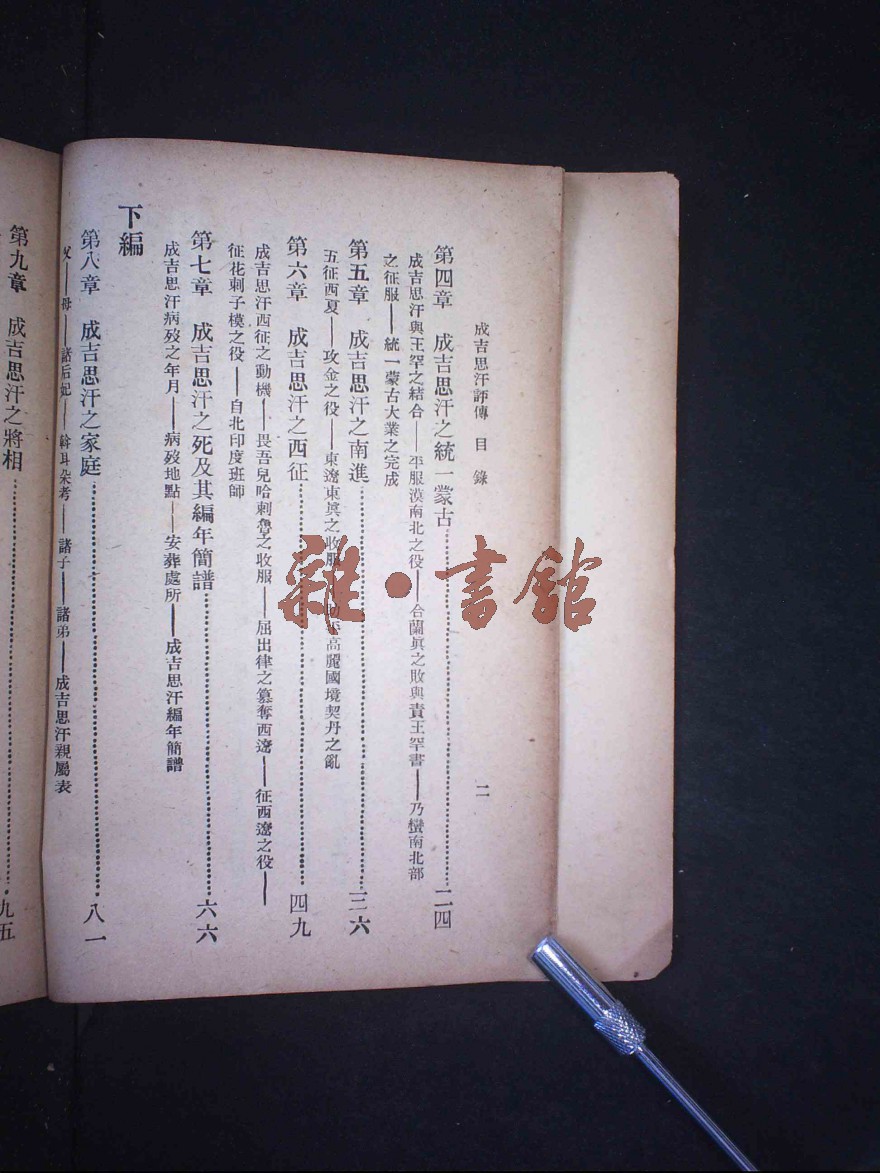 成吉思汗評傳 目錄
二
第四章 成吉思汗之統一蒙古……二四
成吉思汗與王罕之結合——平服漠南北之役——合蘭眞之敗與責王罕書——乃蠻南北部
之征服——統一蒙古大業之完成
第五章 成吉思汗之南進……三六
五征西夏——攻金之役——東遼東眞之收服 高麗國境契丹之亂
第六章 成吉思汗之西征……四九
成吉思汗西征之動機——畏吾兒哈剌魯之收服——屈出律之篡奪西遼——征西遼之役——
征花剌子模之役——自北印度班師
第七章 成吉思汗之死及其編年簡譜……六六
成吉思汗病歿之年月——病歿地點——安葬處所——成吉思汗編年簡譜
下編
第八章 成吉思汗之家庭……八一
父——母——諸后妃——斡耳朵考——諸子——諸弟——成吉思汗親屬表
第九章 成吉思汗之將相……九五
雜·書館